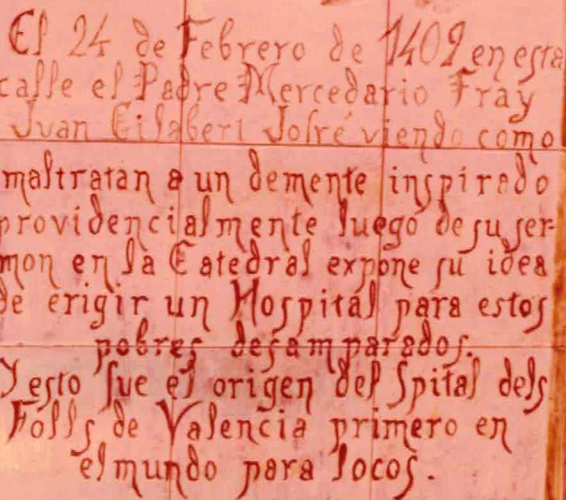 El 24 de Febrero de 1409 en esta
calle el Padre Mercedario Fray
Juan Gilabert Jofré viendo como
maltratan a un demente inspirado
providencialmente luego de su ser-
mon en la Catedral expone su idea
de erigir un Hospital para estos
pobres desamparados.
Y esto fue el origen del Spital dels
Folls de Valencia primero en
el mundo para locos.